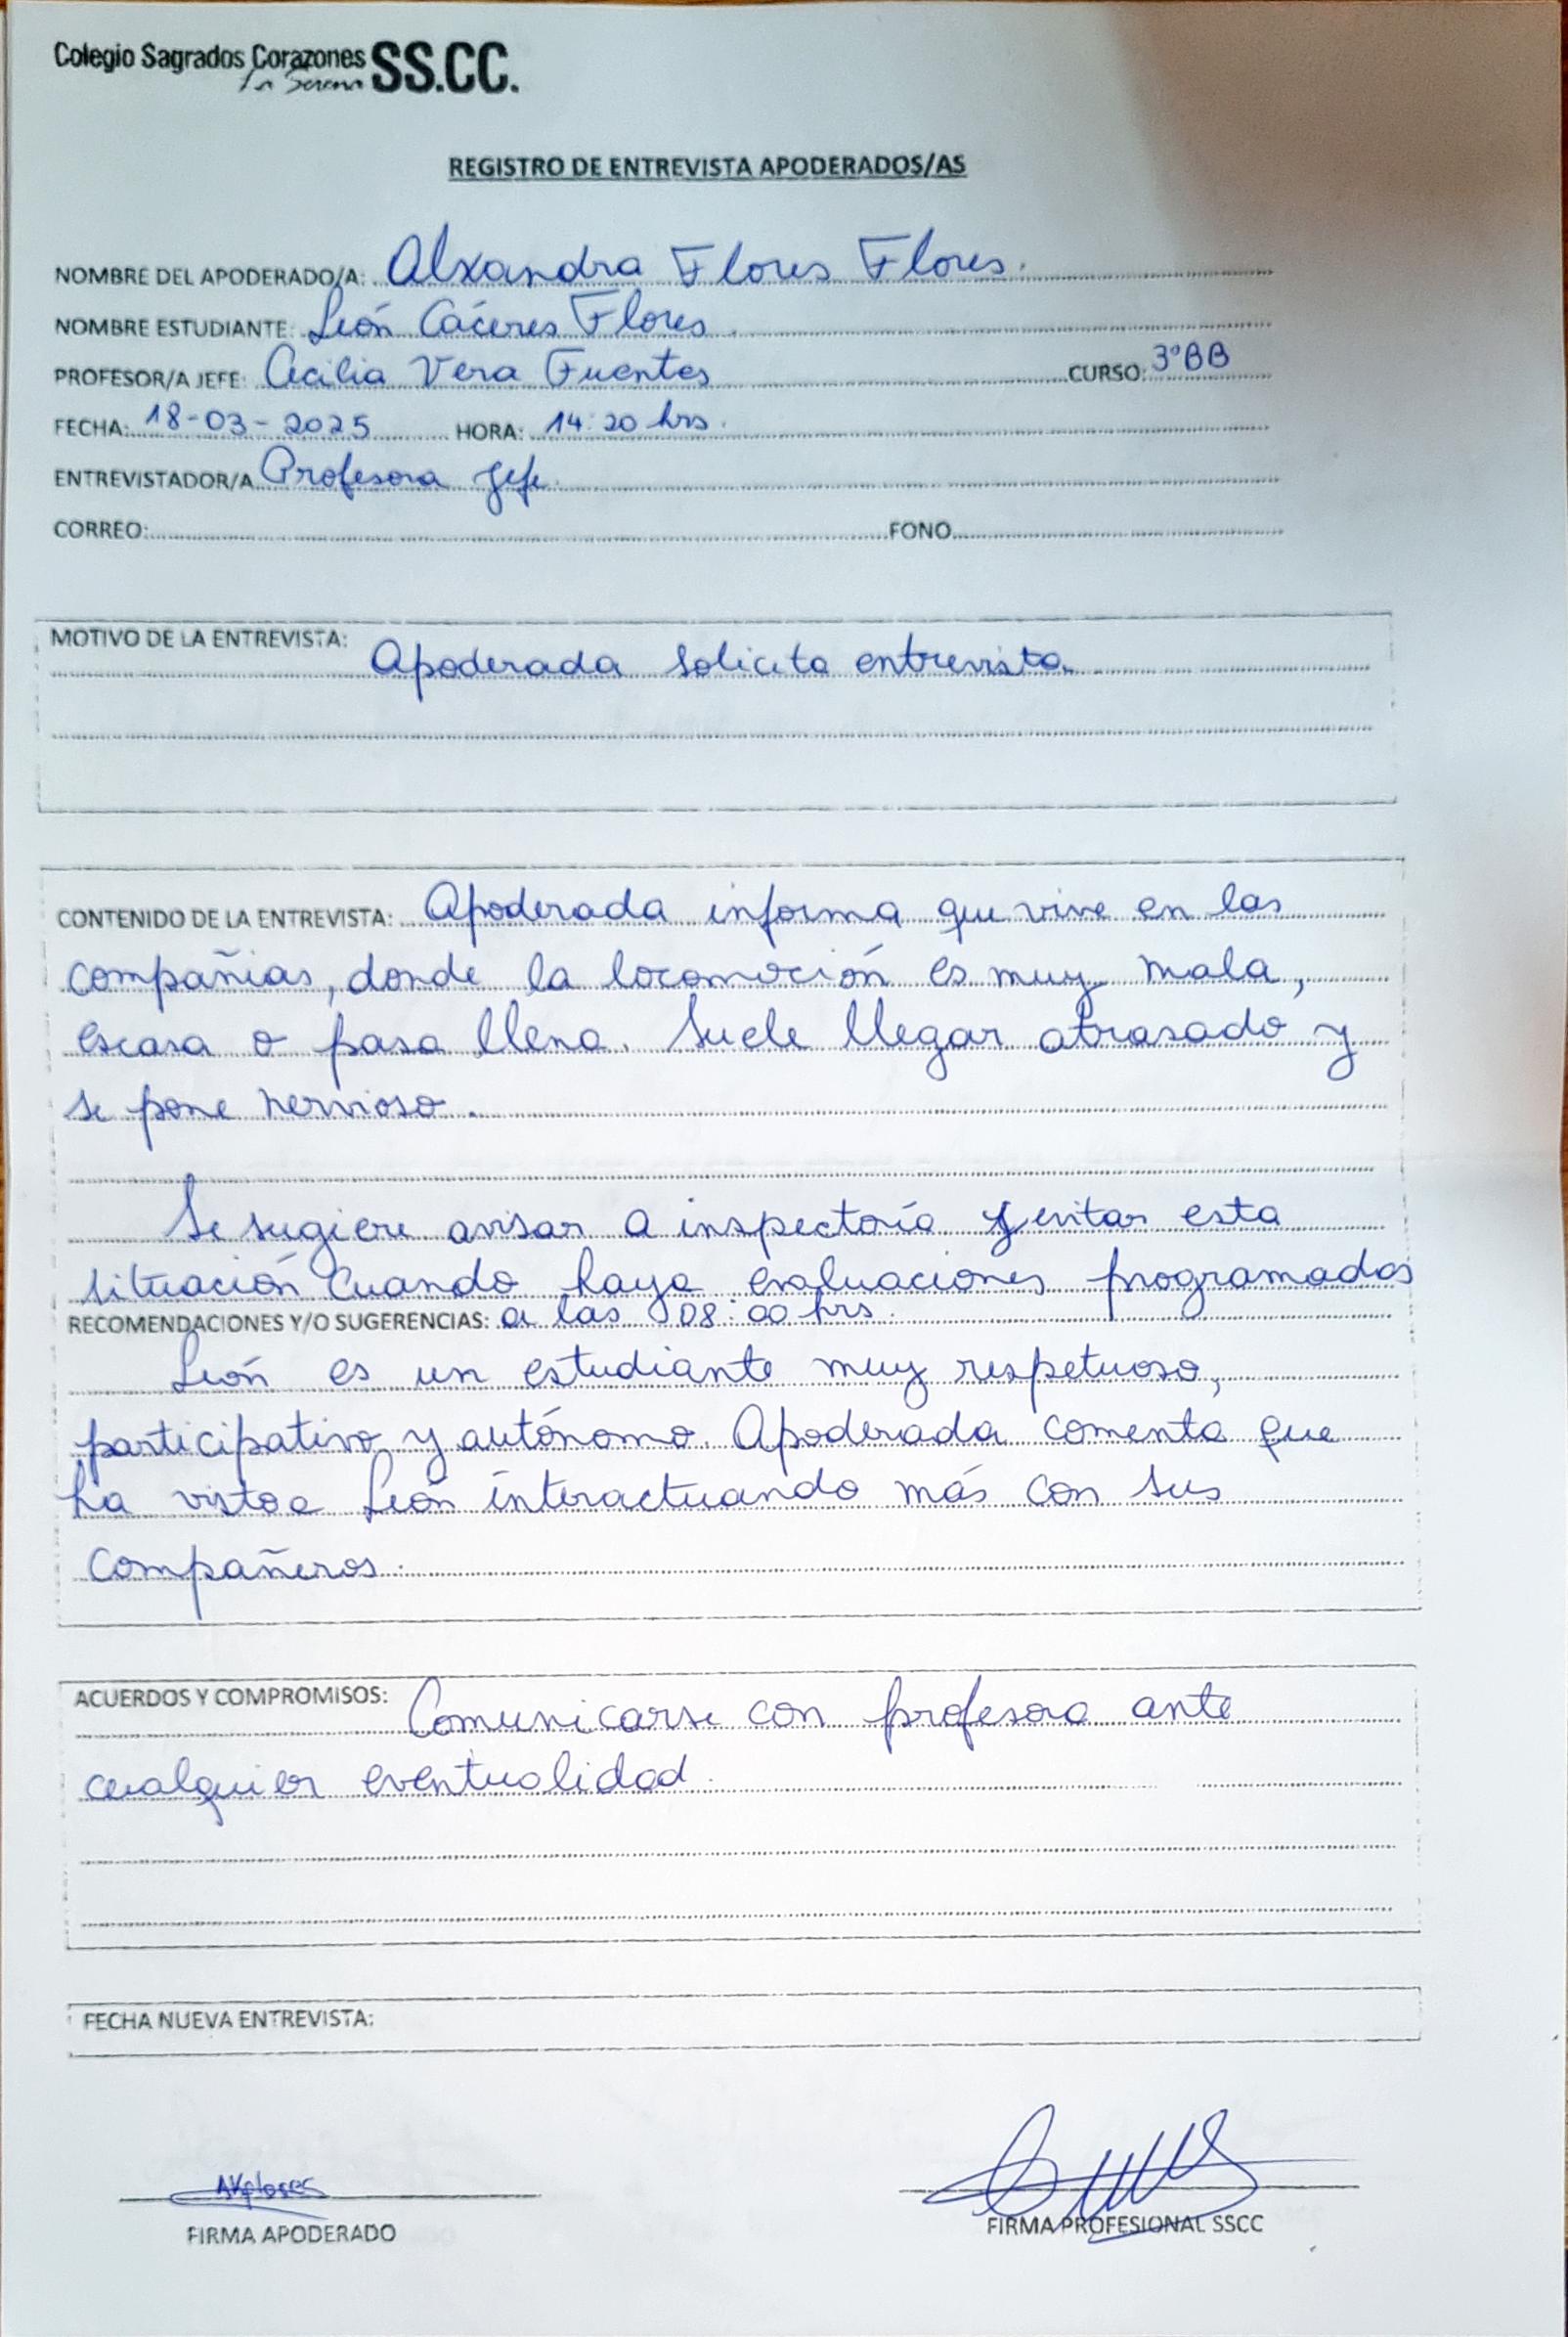 Colegio Sagrados Corazones SS.CC.
La Serena
REGISTRO DE ENTREVISTA APODERADOS/AS
NOMBRE DEL APODERADO/A: Alxandra Flores Flores.
NOMBRE ESTUDIANTE: León Cáceres Flores.
PROFESOR/A JEFE: Cecilia Vera Fuentes CURSO: 3°BB
FECHA: 18-03-2025 HORA: 14:20 hrs.
ENTREVISTADOR/A Profesora Jefe.
CORREO: FONO
MOTIVO DE LA ENTREVISTA: Apoderada solicita entrevista.
CONTENIDO DE LA ENTREVISTA: Apoderada informa que vive en las
compañias, donde la locomoción es muy mala,
escasa o pasa llena. Suele llegar atrasado y
se pone nervioso.
Se sugiere avisar a inspectoría y evitar esta
situación cuando haya evaluaciones programadas
RECOMENDACIONES Y/O SUGERENCIAS: a las 08:00 hrs.
León es un estudiante muy respetuoso,
participativo y autónomo. Apoderada comenta que
ha visto a León interactuando más con sus
compañeros.
ACUERDOS Y COMPROMISOS: Comunicarse con profesora ante
cualquier eventualidad.
FECHA NUEVA ENTREVISTA:
AKflores
FIRMA APODERADO
FIRMA PROFESIONAL SSCC